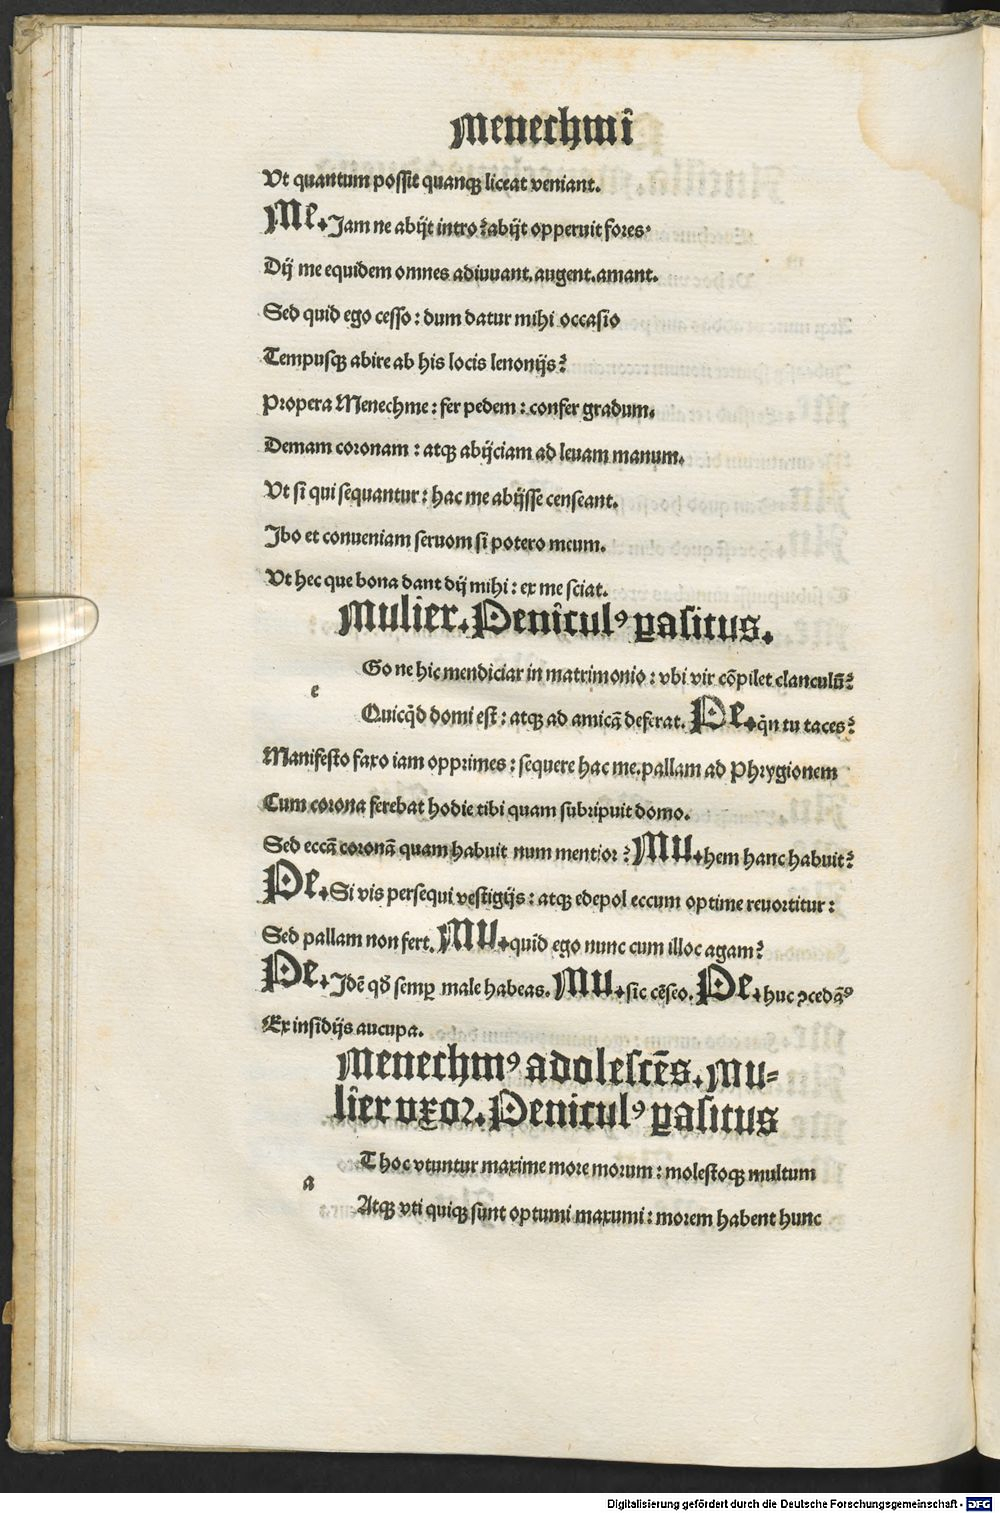 Menechmi
Ut quantum possit quanqꝫ liceat veniant.
Me. Jam ne abijt intro? abijt opperuit fores.
Dij me equidem omnes adiuuant. augent. amant.
Sed quid ego cesso: dum datur mihi occasio
Tempusqꝫ abire ab his locis lenonijs?
Propera Menechme: fer pedem: confer gradum.
Demam coronam: atqꝫ abijciam ad leuam manum.
Ut si qui sequantur: hac me abijsse censeant.
Ibo et conueniam seruom si potero meum.
Ut hec que bona dant dij mihi: ex me sciat.
Mulier. Peniculꝰ ꝑasitus.
Go ne hic mendiciar in matrimonio: vbi vir cõpilet clanculũ?
e
Quicq̃d domi est: atqꝫ ad amicã deferat. Pe. q̃n tu taces?
Manifesto faxo iam opprimes: sequere hac me. pallam ad Phrygionem
Cum corona ferebat hodie tibi quam subripuit domo.
Sed eccã coronã quam habuit num mentior? Mu. hem hanc habuit?
Pe. Si vis persequi vestigijs: atqꝫ edepol eccum optime reuortitur:
Sed pallam non fert. Mu. quid ego nunc cum illoc agam?
Pe. Idẽ qđ semꝑ male habeas. Mu. sic cẽseo. Pe. huc ↄcedãꝰ
Ex insidijs aucupa.
Menechmꝰ adolescẽs. Mu-
lier vxor. Peniculꝰ ꝑasitus
T hoc vtuntur maxime more morum: molestoqꝫ multum
a
Atqꝫ vti quiqꝫ sunt optumi maxumi: morem habent hunc
Digitalisierung gefördert durch die Deutsche Forschungsgemeinschaft - DFG